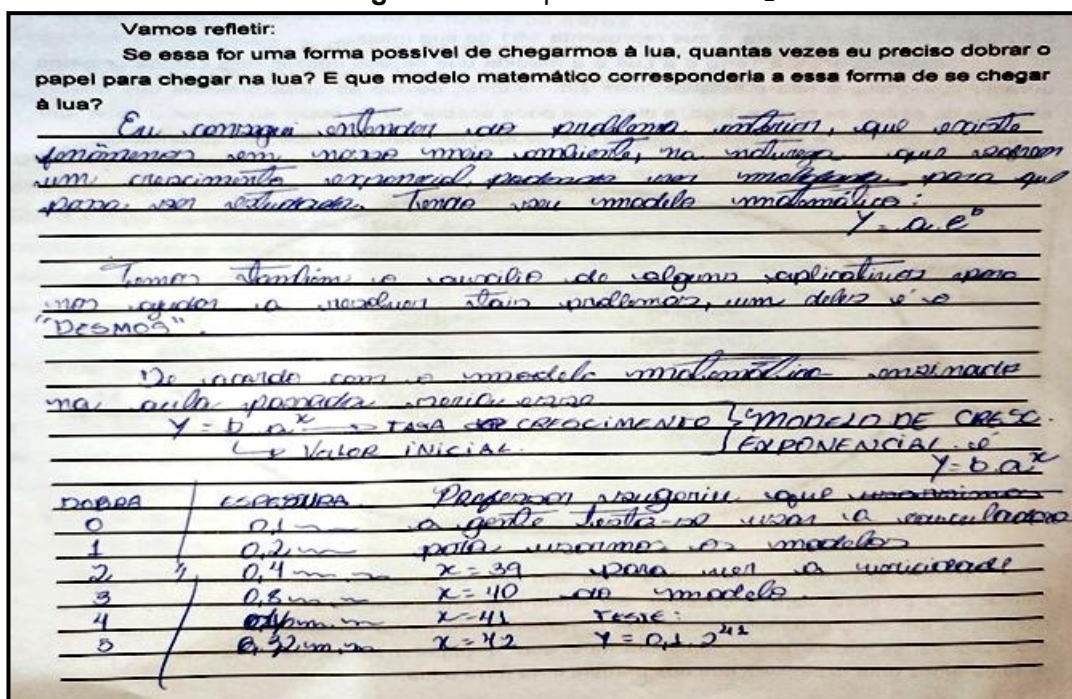 Vamos refletir:
Se essa for uma forma possível de chegarmos à lua, quantas vezes eu preciso dobrar o
papel para chegar na lua? E que modelo matemático corresponderia a essa forma de se chegar
à lua?
Eu consegui entender do problema anterior, que existe
fenômenos em nosso meio ambiente, na natureza que sofrem
um crescimento exponencial, para que
possa ser estudados. Tendo seu modelo matemático:
Y = a.e^b
Temos também o auxílio de alguns aplicativos para
nos ajudar a resolver tais problemas, um deles é o
"DESMOS".
De acordo com o modelo matemático ensinado
na aula passada seria esse
Y = b.a^x → TAXA DE CRESCIMENTO } MODELO DE CRESC.
↳ VALOR INICIAL. EXPONENCIAL é
Y = b.a^x
DOBRA ESPESSURA Professor sugeriu que
0 0,1 a gente testa-se usar a
1 0,2 para usarmos os modelos
2 0,4 x = 39 para ver a
3 0,8 x = 40 do modelo.
4 x = 41 TESTE:
5 x = 42 Y = 0,1.2^41